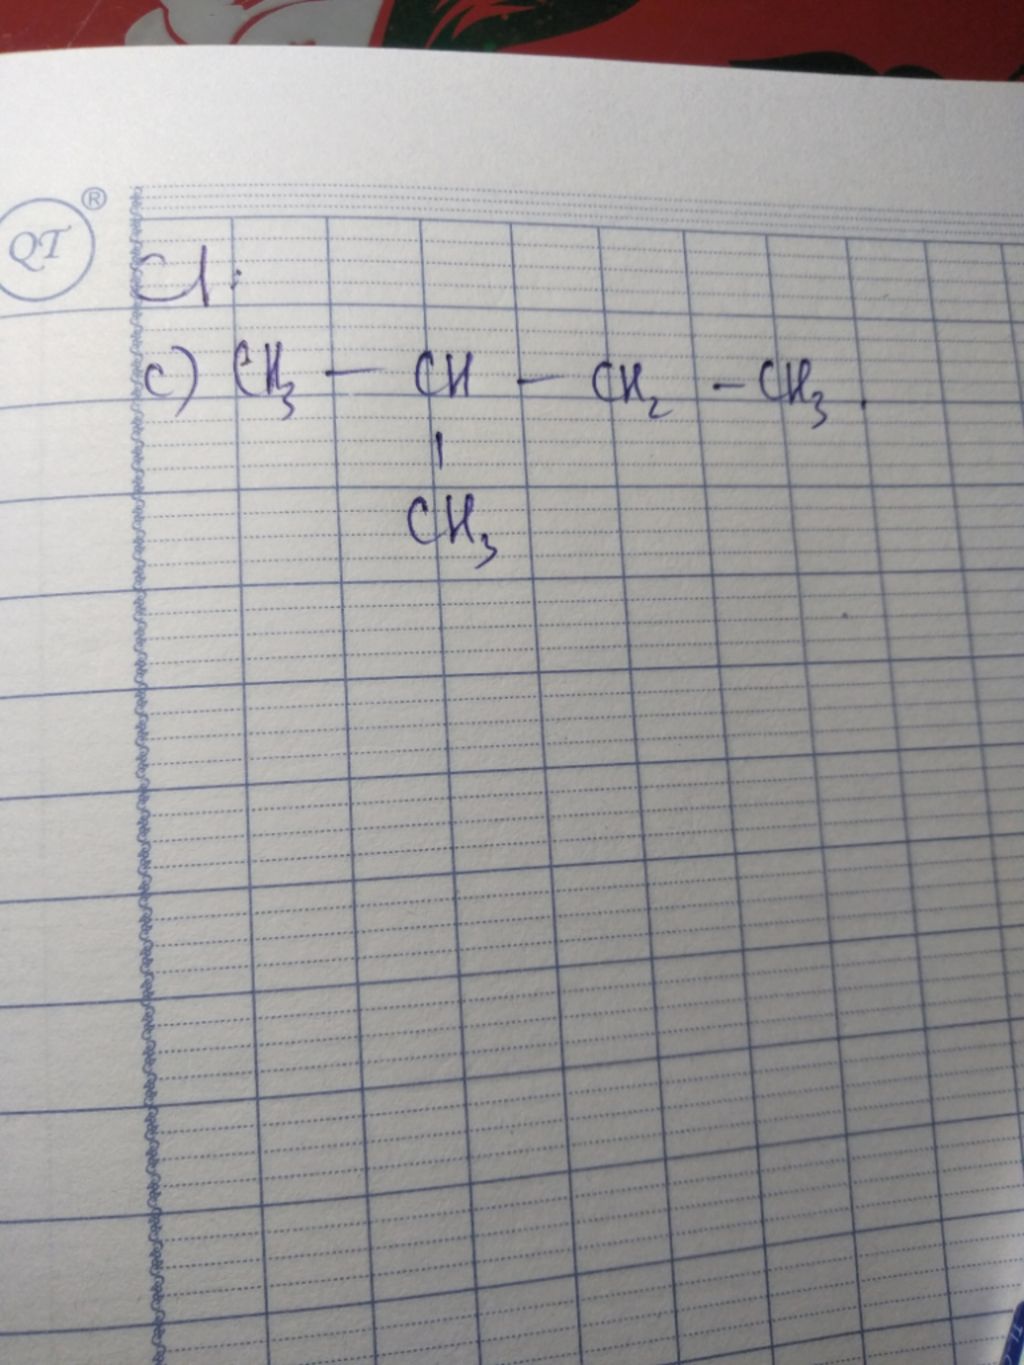 QT ®
C1:
c) CH₃ — CH — CH₂ — CH₃.
|
CH₃